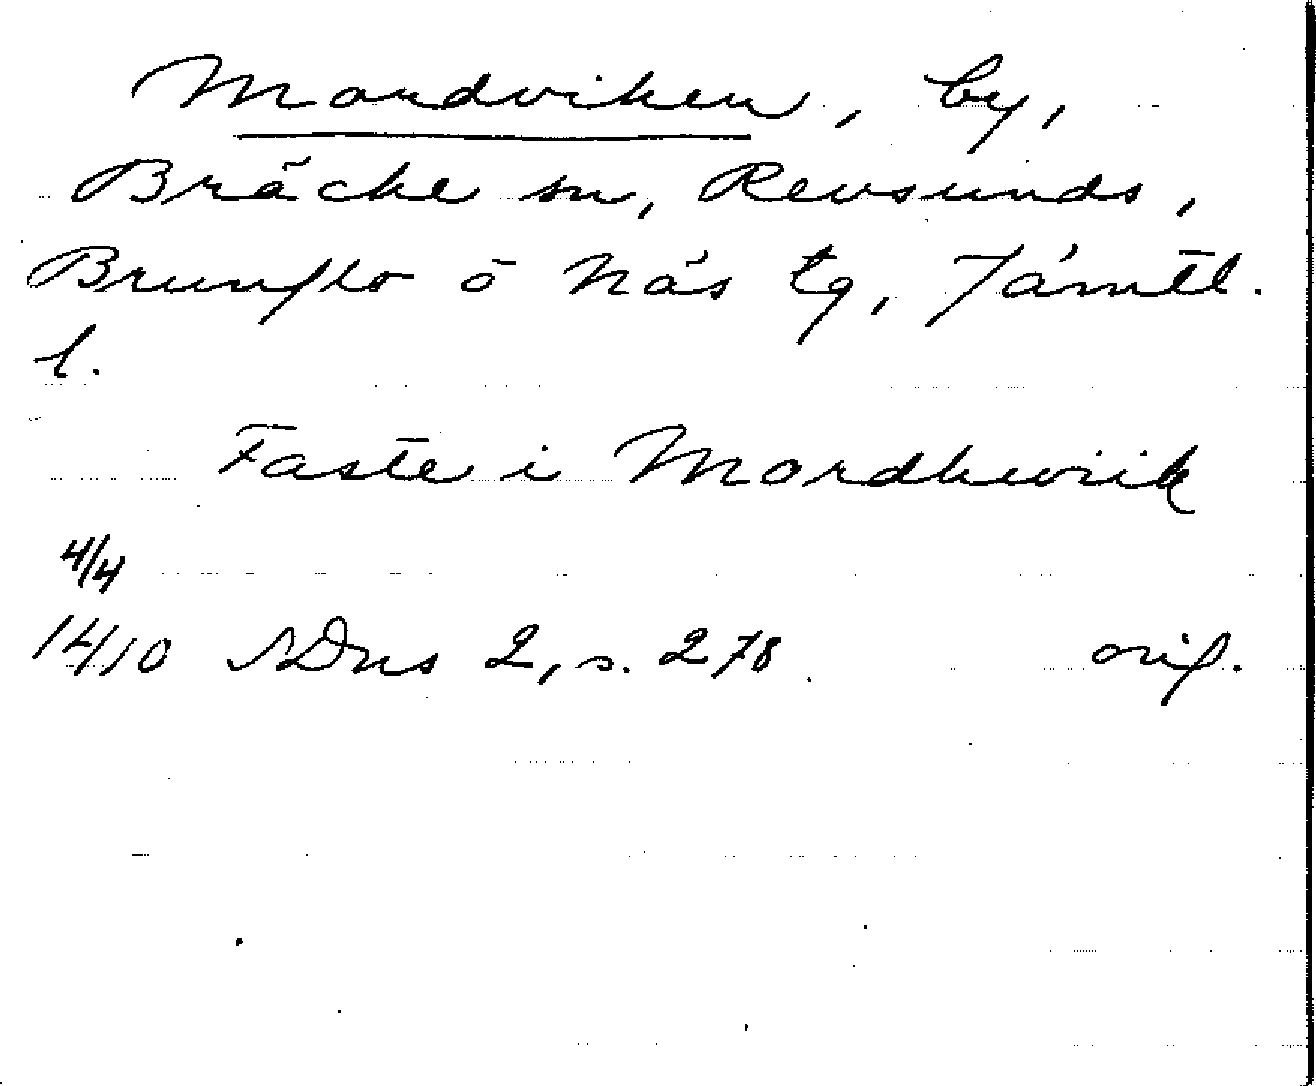 Mordviken, by,
Bräcke sn, Revsunds,
Brunflo o Näs tg, Jämtl.
l.
Faste i Mordhewiik
4/4
1410 SDns 2, s. 278 orig.